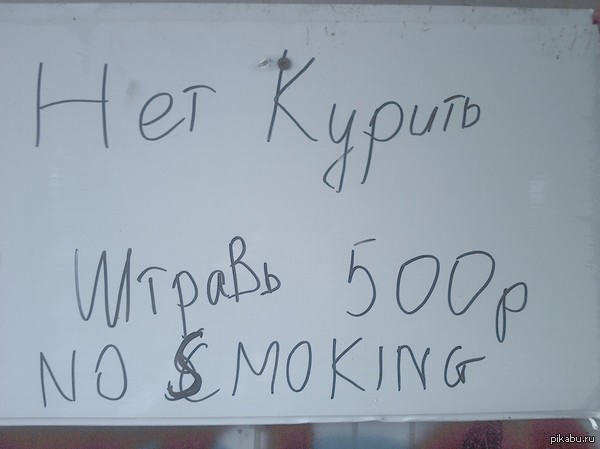 Нет Курить
Штравь 500р
NO SMOKING
pikabu.ru